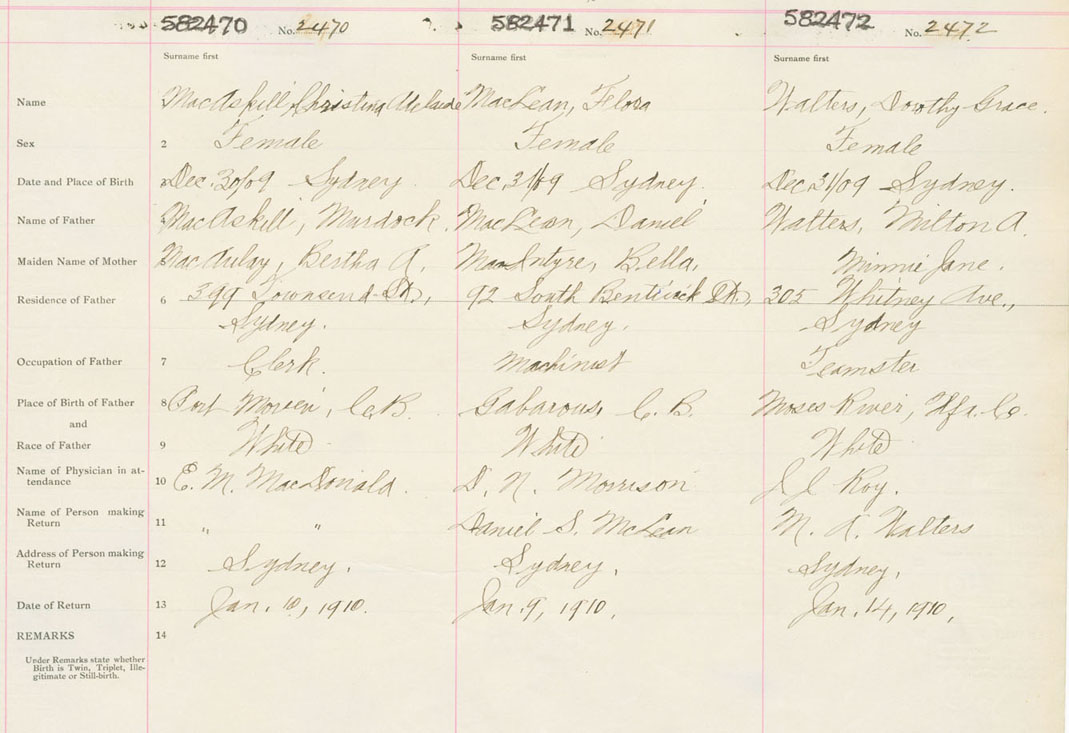 582470 No. 2470 582471 No. 2471 582472 No. 2472
Surname first Surname first Surname first
Name MacAskill, Christina Adelaide MacLean, Flora Walters, Dorothy Grace.
Sex 2 Female Female Female
Date and Place of Birth Dec. 30/09 Sydney. Dec 31/09 Sydney. Dec 31/09 Sydney.
Name of Father MacAskill, Murdock. MacLean, Daniel Walters, Milton A.
Maiden Name of Mother MacAulay, Bertha A. MacIntyre, Bella, Minnie Jane.
Residence of Father 6 399 Townsend St., 92 South Bentinck St., 305 Whitney Ave.,
Sydney. Sydney. Sydney
Occupation of Father 7 Clerk. Machinist Teamster
Place of Birth of Father 8 Port Morien, C.B. Gabarous, C.B. Moses River, Hfx. Co.
and
Race of Father 9 White White White
Name of Physician in at-
tendance 10 E. M. MacDonald. D. N. Morrison J J Roy.
Name of Person making
Return 11 " " Daniel S. McLean M. A. Walters
Address of Person making
Return 12 Sydney. Sydney. Sydney.
Date of Return 13 Jan. 10, 1910. Jan. 9, 1910. Jan. 14, 1910.
REMARKS 14
Under Remarks state whether
Birth is Twin, Triplet, Ille-
gitimate or Still-birth.